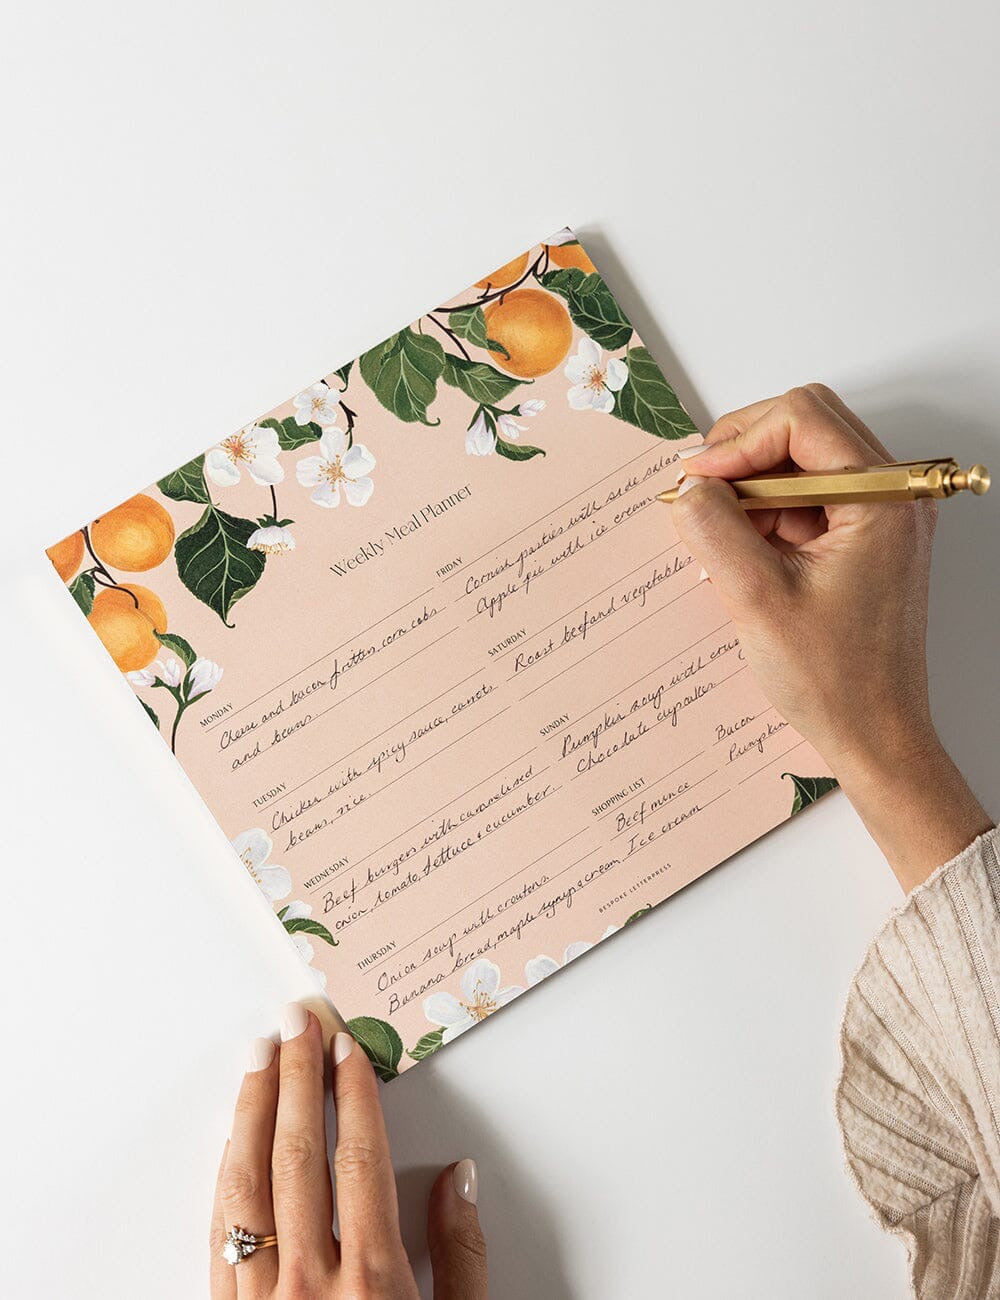 Weekly Meal Planner
MONDAY
Cheese and bacon fritters, corn cobs
and beans.
TUESDAY
Chicken with spicy sauce, carrots
beans, rice.
WEDNESDAY
Beef burgers with caramelised
onion, tomato, lettuce & cucumber.
THURSDAY
Onion soup with croutons.
Banana bread, maple syrup & cream.
FRIDAY
Cornish pasties with side salad
Apple pie with ice cream
SATURDAY
Roast beef and vegetables
SUNDAY
Pumpkin soup with
Chocolate cupcakes.
SHOPPING LIST
Beef mince
Bacon
Ice cream
Pumpkin
BESPOKE LETTERPRESS